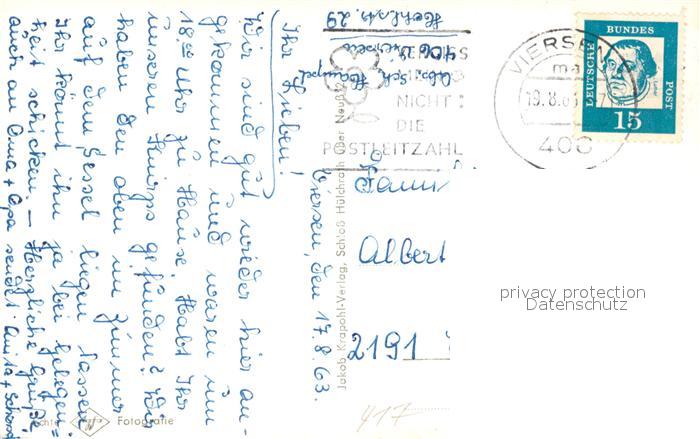 Viersen, den 17.8.63.
Ihr Lieben!
Wir sind gut wieder hier an-
gekommen und waren um
18⁰⁰ Uhr zu Hause. Habt Ihr
unseren Knirps gefunden? Wir
haben den oben im Zimmer
auf dem Sessel liegen lassen.
Ihr könnt ihn ja bei Gelegen-
heit schicken. — Herzliche Grüße
auch an Oma + Opa sendet Anita +
Abs.:
406 Viersen
29
VIERSEN
19.8.63
406
NICHT:
DIE
POSTLEITZAHL
DEUTSCHE BUNDES POST
15
Albert
2191
Jakob Krapohl-Verlag, Schloß Hülchrath über Neuß
Echte Agfa Fotografie
417
privacy protection
Datenschutz